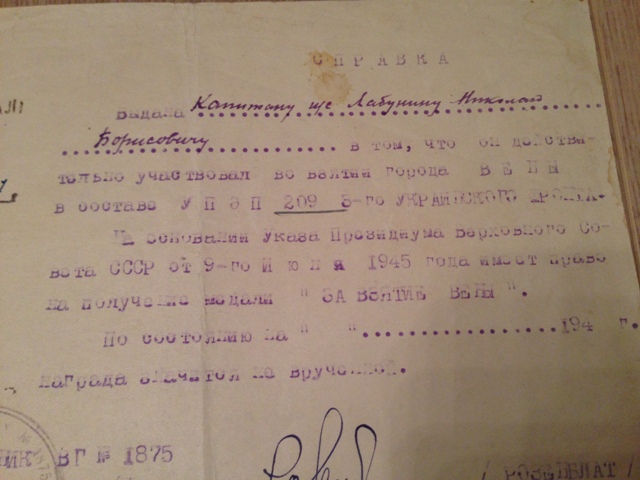 СПРАВКА
Выдана Капитану м/с Лабунину Николаю
Борисовичу в том, что он действи-
тельно участвовал во взятии города ВЕНЫ
в составе УПЭП 209 3-го УКРАИНСКОГО ФРОНТА.
На основании Указа Президиума Верховного Со-
вета СССР от 9-го Июня 1945 года имеет право
на получение медали " ЗА ВЗЯТИЕ ВЕНЫ ".
По состоянию на " "..................194 г.
награда значится не врученной.
НИК ВГ № 1875
/ РОЗЕНБЛАТ /